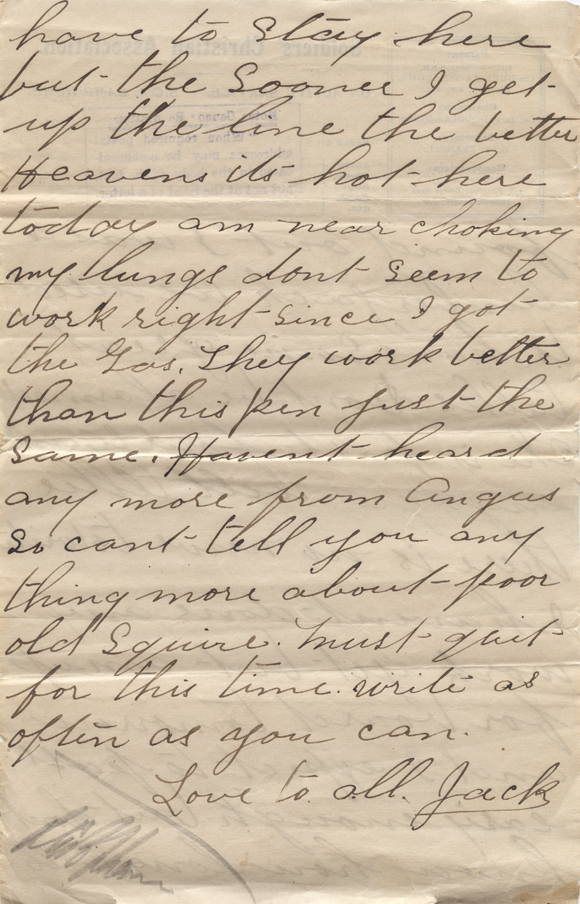 have to stay here
but the sooner I get
up the line the better
Heavens its hot here
today am near choking
my lungs dont seem to
work right since I got
the Gas. They work better
than this pen just the
same. Havent heard
any more from Angus
so cant tell you any
thing more about poor
old Squire. Must quit
for this time. write as
often as you can.
Love to all. Jack